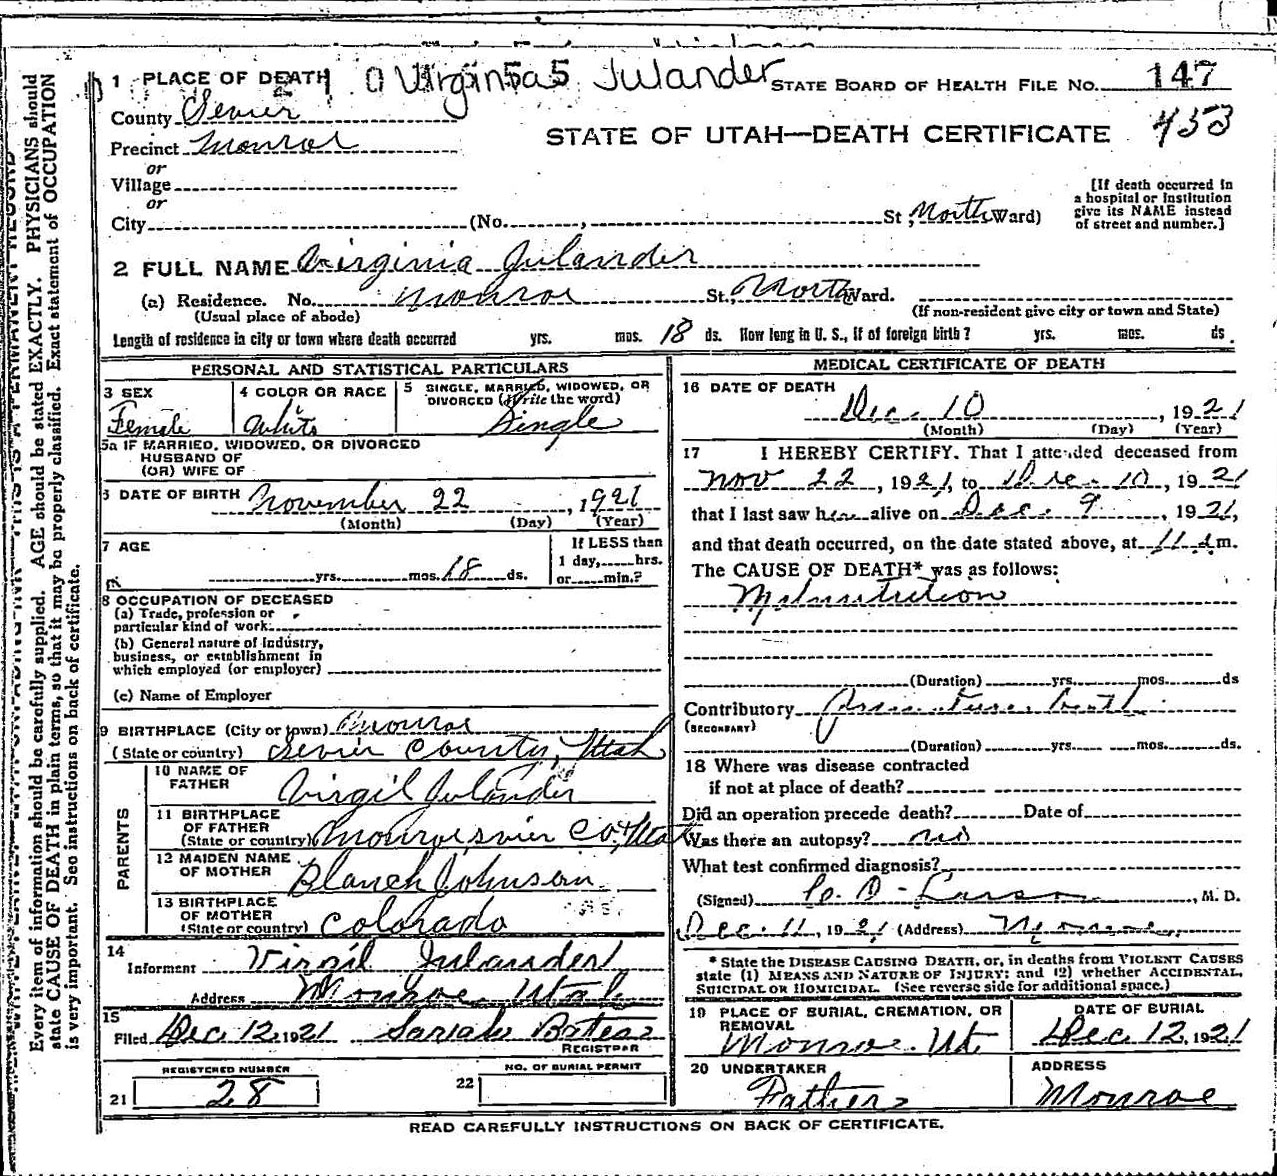 1 PLACE OF DEATH Virginia Julander STATE BOARD OF HEALTH FILE NO. 147
County Sevier 453
Precinct Monroe STATE OF UTAH—DEATH CERTIFICATE
or
Village
or
City (No. , St; North Ward)
[If death occurred in
a hospital or institution
give its NAME instead
of street and number.]
2 FULL NAME Virginia Julander
(a) Residence. No. Monroe St., North Ward.
(Usual place of abode) (If non-resident give city or town and State)
Length of residence in city or town where death occurred yrs. mos. 18 ds. How long in U. S., if of foreign birth? yrs. mos. ds.
PERSONAL AND STATISTICAL PARTICULARS
3 SEX 4 COLOR OR RACE 5 SINGLE, MARRIED, WIDOWED, OR
DIVORCED (Write the word)
Female White Single
5a IF MARRIED, WIDOWED, OR DIVORCED
HUSBAND OF
(OR) WIFE OF
6 DATE OF BIRTH November 22, 1921
(Month) (Day) (Year)
7 AGE If LESS than
1 day, hrs.
yrs. mos. 18 ds. or min.?
8 OCCUPATION OF DECEASED
(a) Trade, profession or
particular kind of work
(b) General nature of industry,
business, or establishment in
which employed (or employer)
(c) Name of Employer
9 BIRTHPLACE (City or town) Monroe
(State or country) Sevier County, Utah
PARENTS
10 NAME OF
FATHER Virgil Julander
11 BIRTHPLACE
OF FATHER
(State or country) Monroe Svier Co, Uta
12 MAIDEN NAME
OF MOTHER Blanch Johnson
13 BIRTHPLACE
OF MOTHER
(State or country) Colorado
14
Informent Virgil Julander
Address Monroe Utah
15
Filed Dec 12, 1921 Sariah Bates
REGISTRAR
REGISTERED NUMBER NO. OF BURIAL PERMIT
21 28 22
MEDICAL CERTIFICATE OF DEATH
16 DATE OF DEATH
Dec. 10, 1921
(Month) (Day) (Year)
17 I HEREBY CERTIFY. That I attended deceased from
Nov 22, 1921, to Dec. 10, 1921
that I last saw her alive on Dec. 9, 1921,
and that death occurred, on the date stated above, at 11 m.
The CAUSE OF DEATH* was as follows:
Malnutrition
(Duration) yrs. mos. ds
Contributory Premature birth
(SECONDARY)
(Duration) yrs. mos. ds.
18 Where was disease contracted
if not at place of death?
Did an operation precede death? Date of
Was there an autopsy? No
What test confirmed diagnosis?
(Signed) Larson, M. D.
Dec. 11, 1921 (Address) Monroe
* State the DISEASE CAUSING DEATH, or, in deaths from VIOLENT CAUSES
state (1) MEANS AND NATURE OF INJURY; and (2) whether ACCIDENTAL,
SUICIDAL OR HOMICIDAL. (See reverse side for additional space.)
19 PLACE OF BURIAL, CREMATION, OR
REMOVAL DATE OF BURIAL
Monroe Ut Dec. 12, 1921
20 UNDERTAKER ADDRESS
Father Monroe
READ CAREFULLY INSTRUCTIONS ON BACK OF CERTIFICATE.
Every item of information should be carefully supplied. AGE should be stated EXACTLY. PHYSICIANS should
state CAUSE OF DEATH in plain terms, so that it may be properly classified. Exact statement of OCCUPATION
is very important. See instructions on back of certificate.